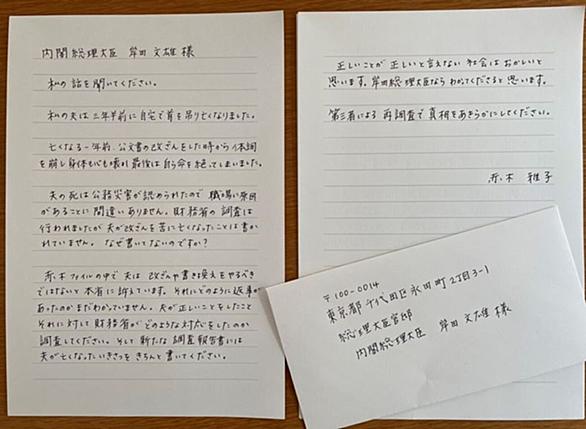 内閣総理大臣 岸田文雄様
私の話を聞いてください。
私の夫は三年半前に自宅で首を吊り亡くなりました。
亡くなる一年前、公文書の改ざんをした時から体調
を崩し身体も心も壊れ最後は自ら命を絶ってしまいました。
夫の死は公務災害が認められたので職場に原因
があることに間違いありません。財務省の調査は
行われましたが夫が改ざんを苦に亡くなったことは書か
れていません。なぜ書いてないのですか?
赤木ファイルの中で夫は改ざんや書き換えをやるべき
ではないと本省に訴えています。それにどのように返事が
あったのかまだわかっていません。夫が正しいことをしたこと
それに対して財務省がどのような対応をしたのか
調査してください。そして新たな調査報告書には
夫が亡くなったいきさつをきちんと書いてください。
正しいことが正しいと言えない社会はおかしいと
思います。岸田総理大臣ならわかってくださると思います。
第三者による再調査で真相をあきらかにしてください。
赤木 雅子
〒100-0014
東京都千代田区永田町2丁目3-1
総理大臣官邸
内閣総理大臣 岸田文雄様